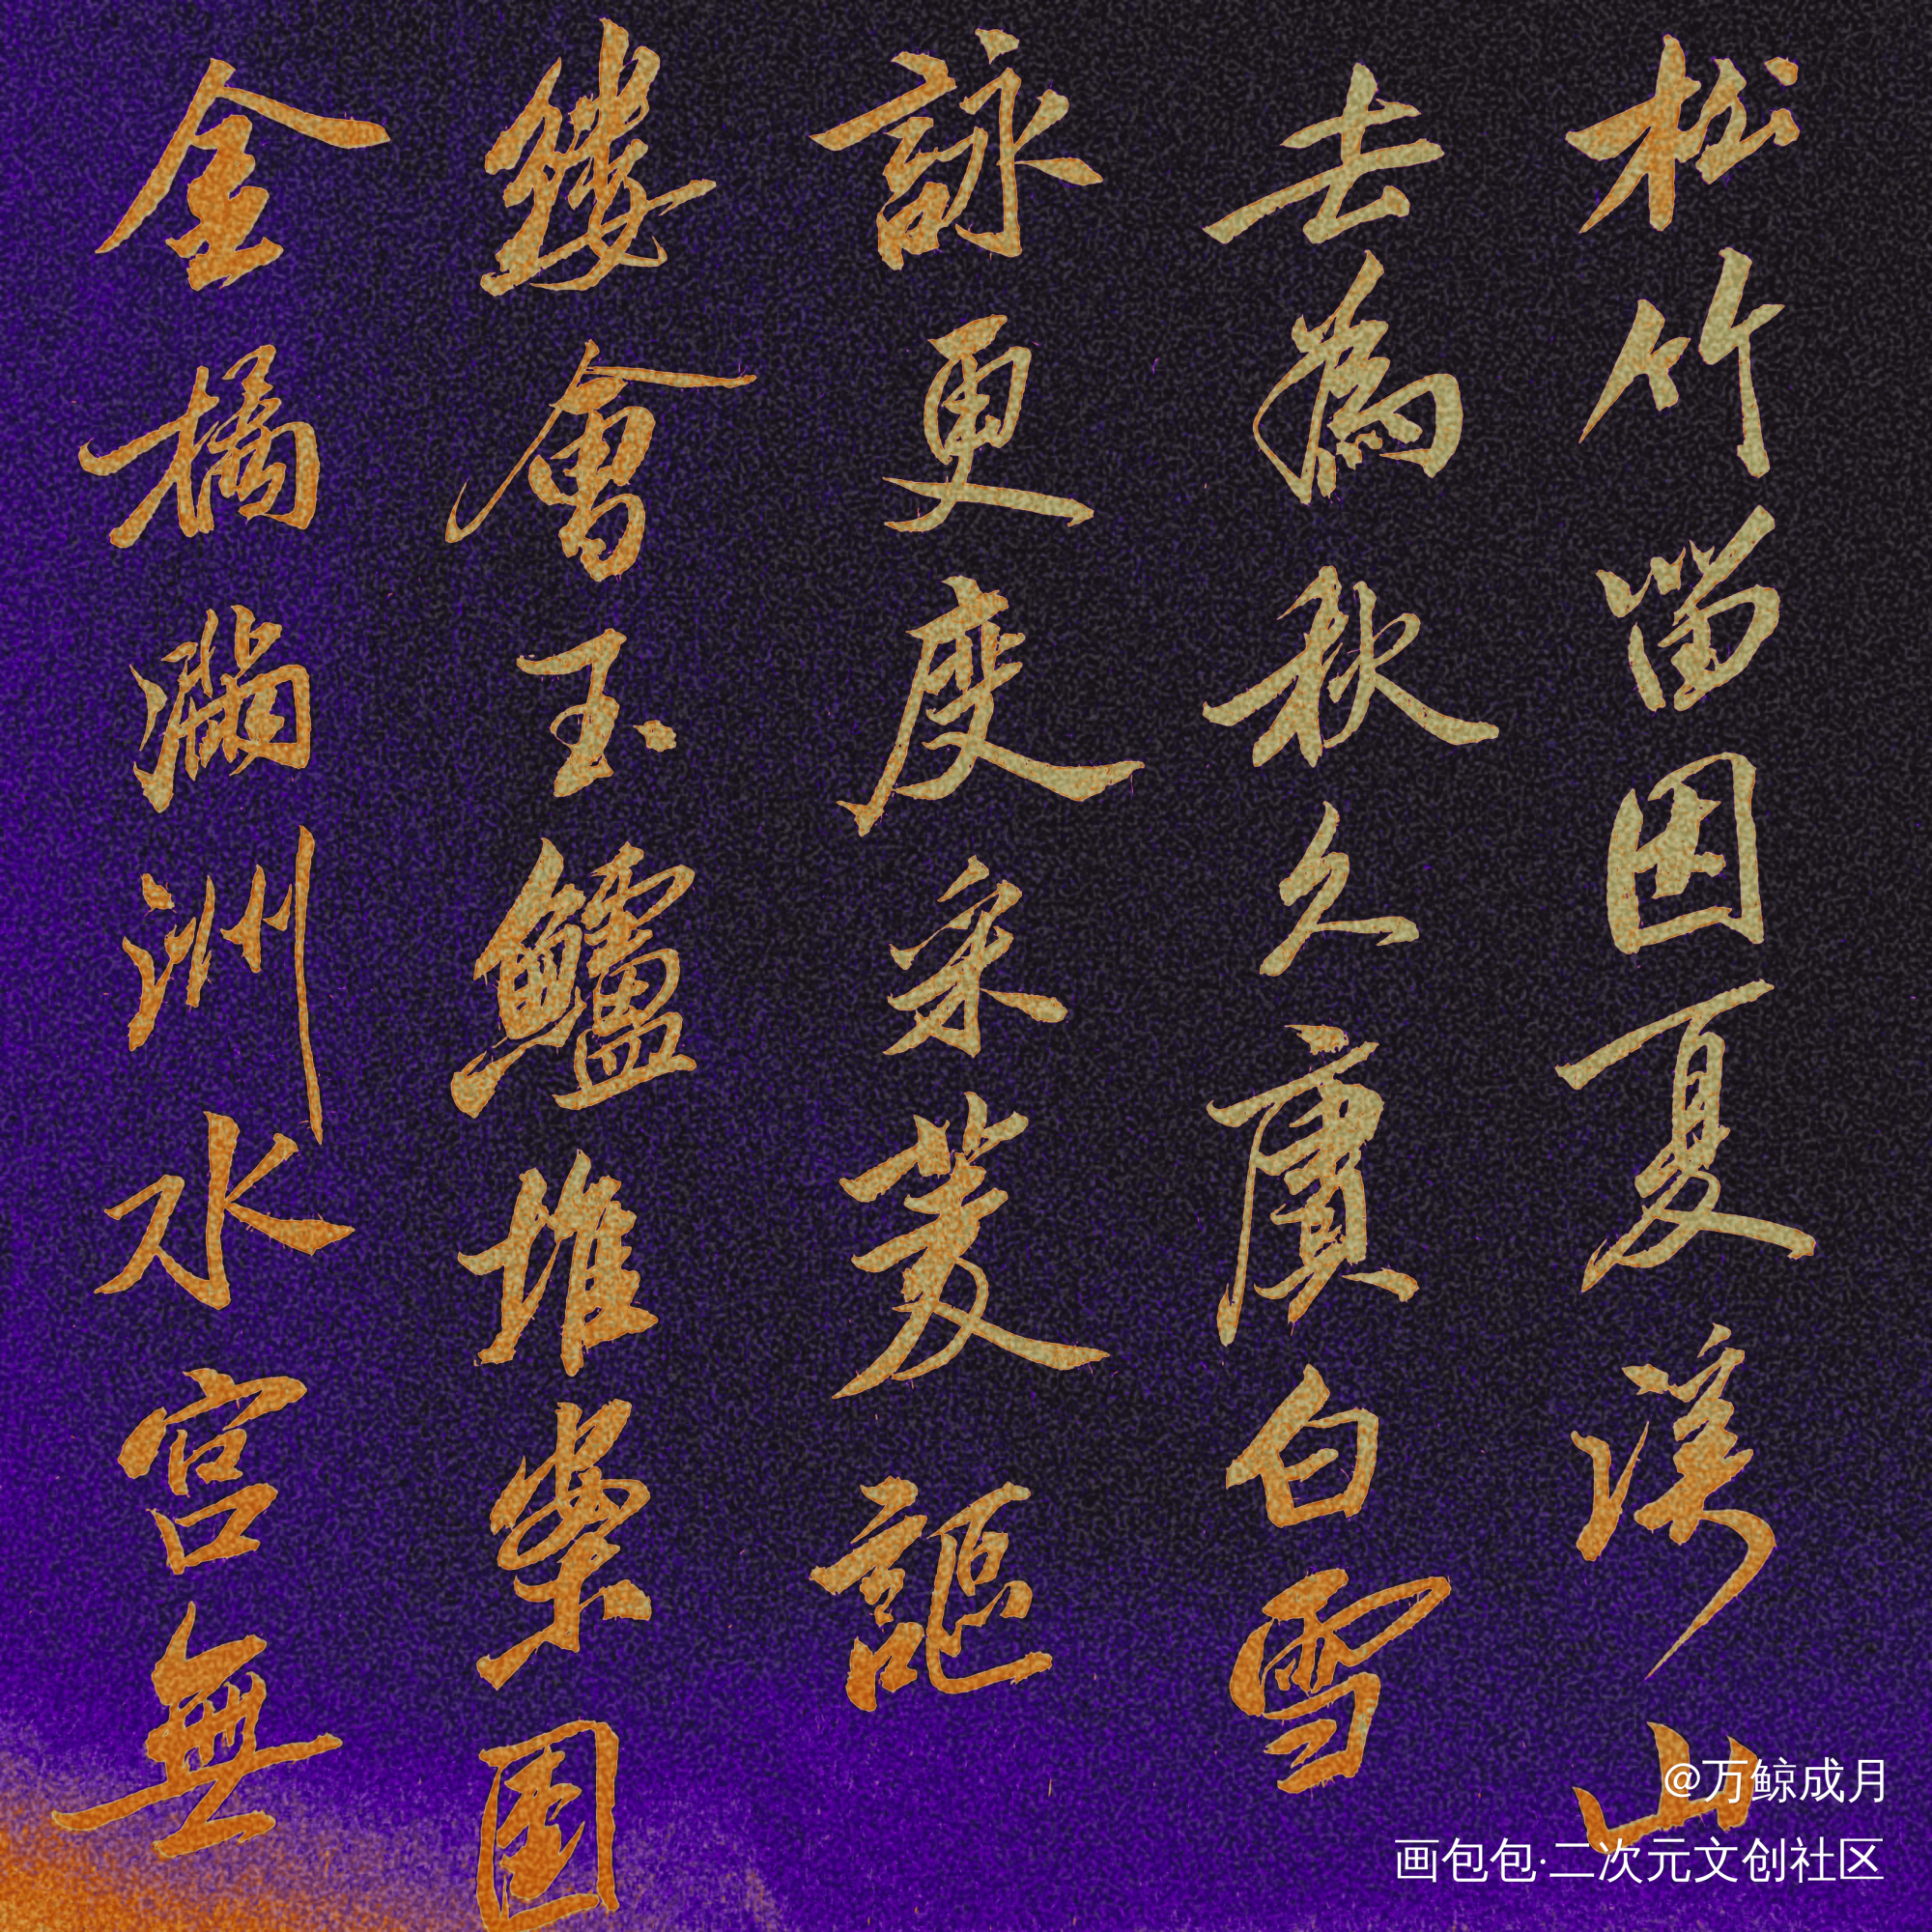 松竹留因夏溪山
去為秋久賡白雪
詠更度采菱謳
縷會玉鱸堆案團
金橘滿洲水宮無
@万鲸成月
画包包·二次元文创社区